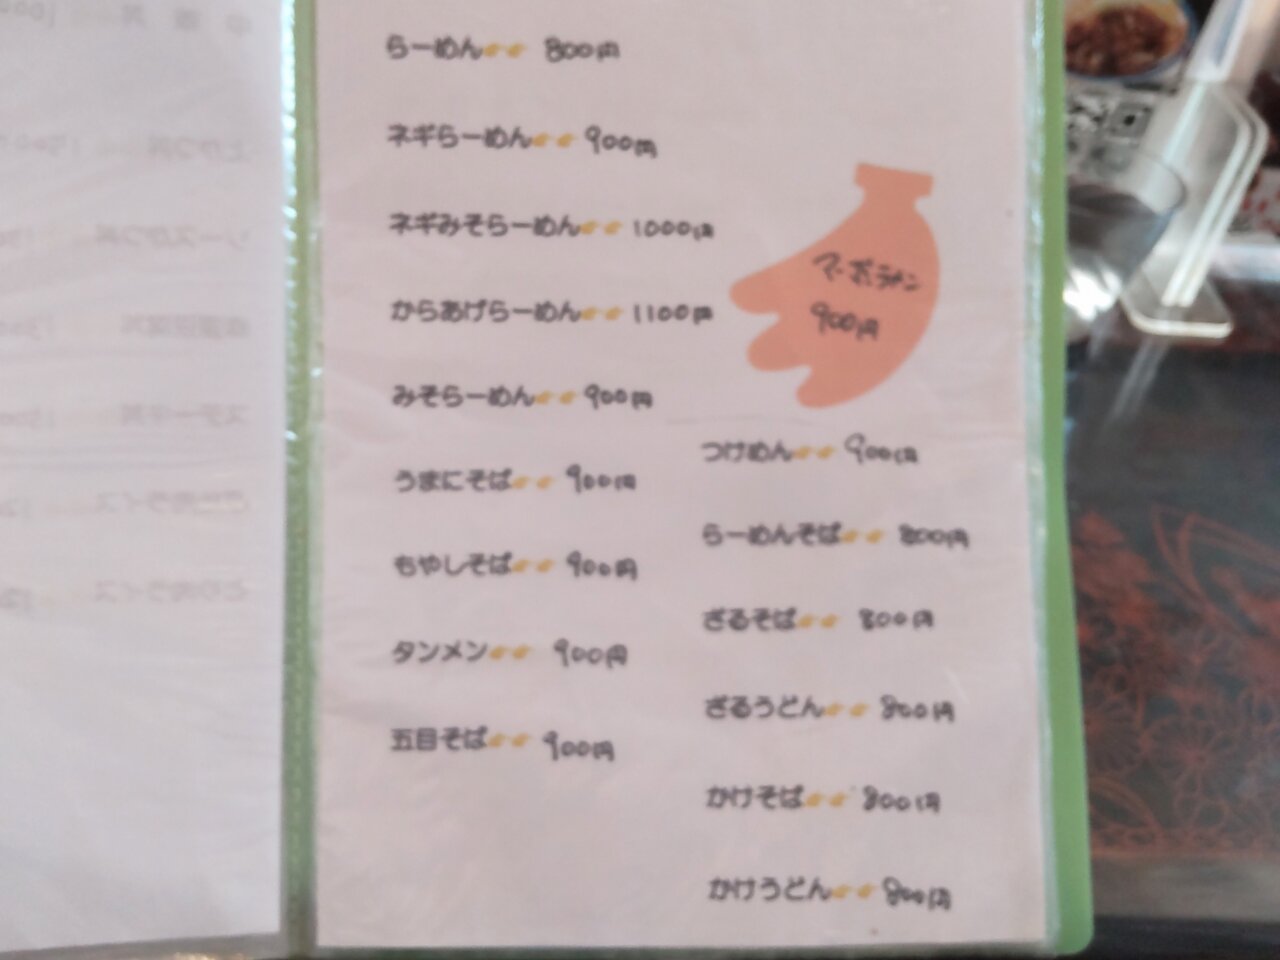 らーめん 800円
ネギらーめん 900円
ネギみそらーめん 1000円
からあげらーめん 1100円
みそらーめん 900円
うまにそば 900円
もやしそば 900円
タンメン 900円
五目そば 900円
マーボーラーメン
900円
つけめん 900円
らーめんそば 800円
ざるそば 800円
ざるうどん 800円
かけそば 800円
かけうどん 800円